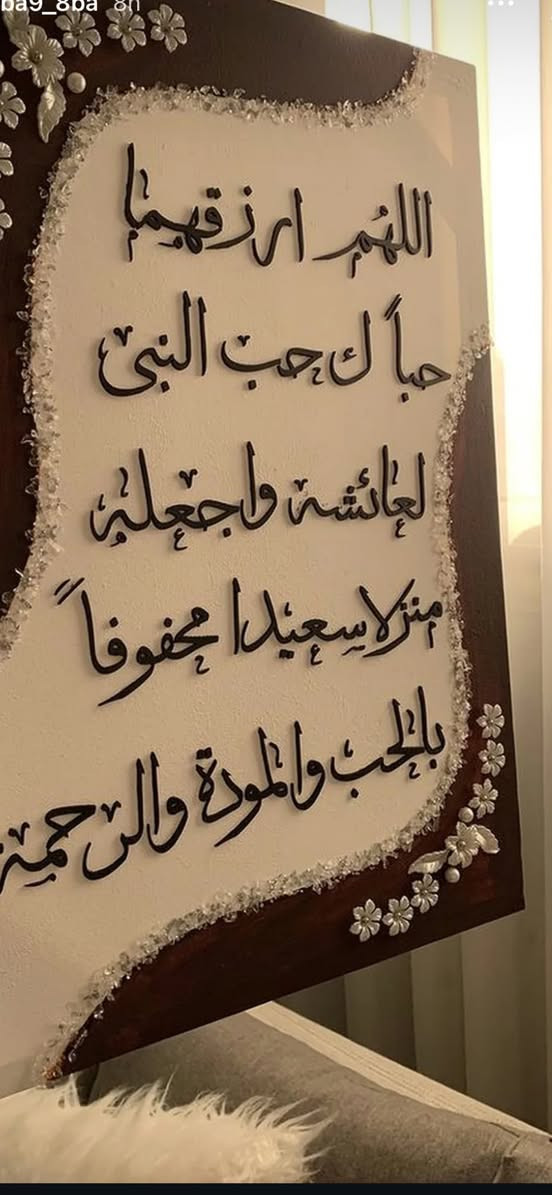 ba9_8ba 8h
اللهم ارزقهما
حباً ك حب النبي
لعائشه واجعله
منزلا سعيدا محفوفاً
بالحب والمودة والرحمة